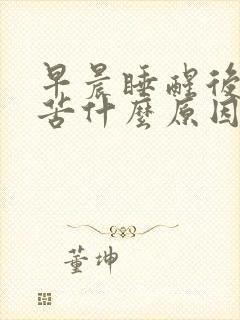 早晨睡醒後
苦什麼原因
董坤